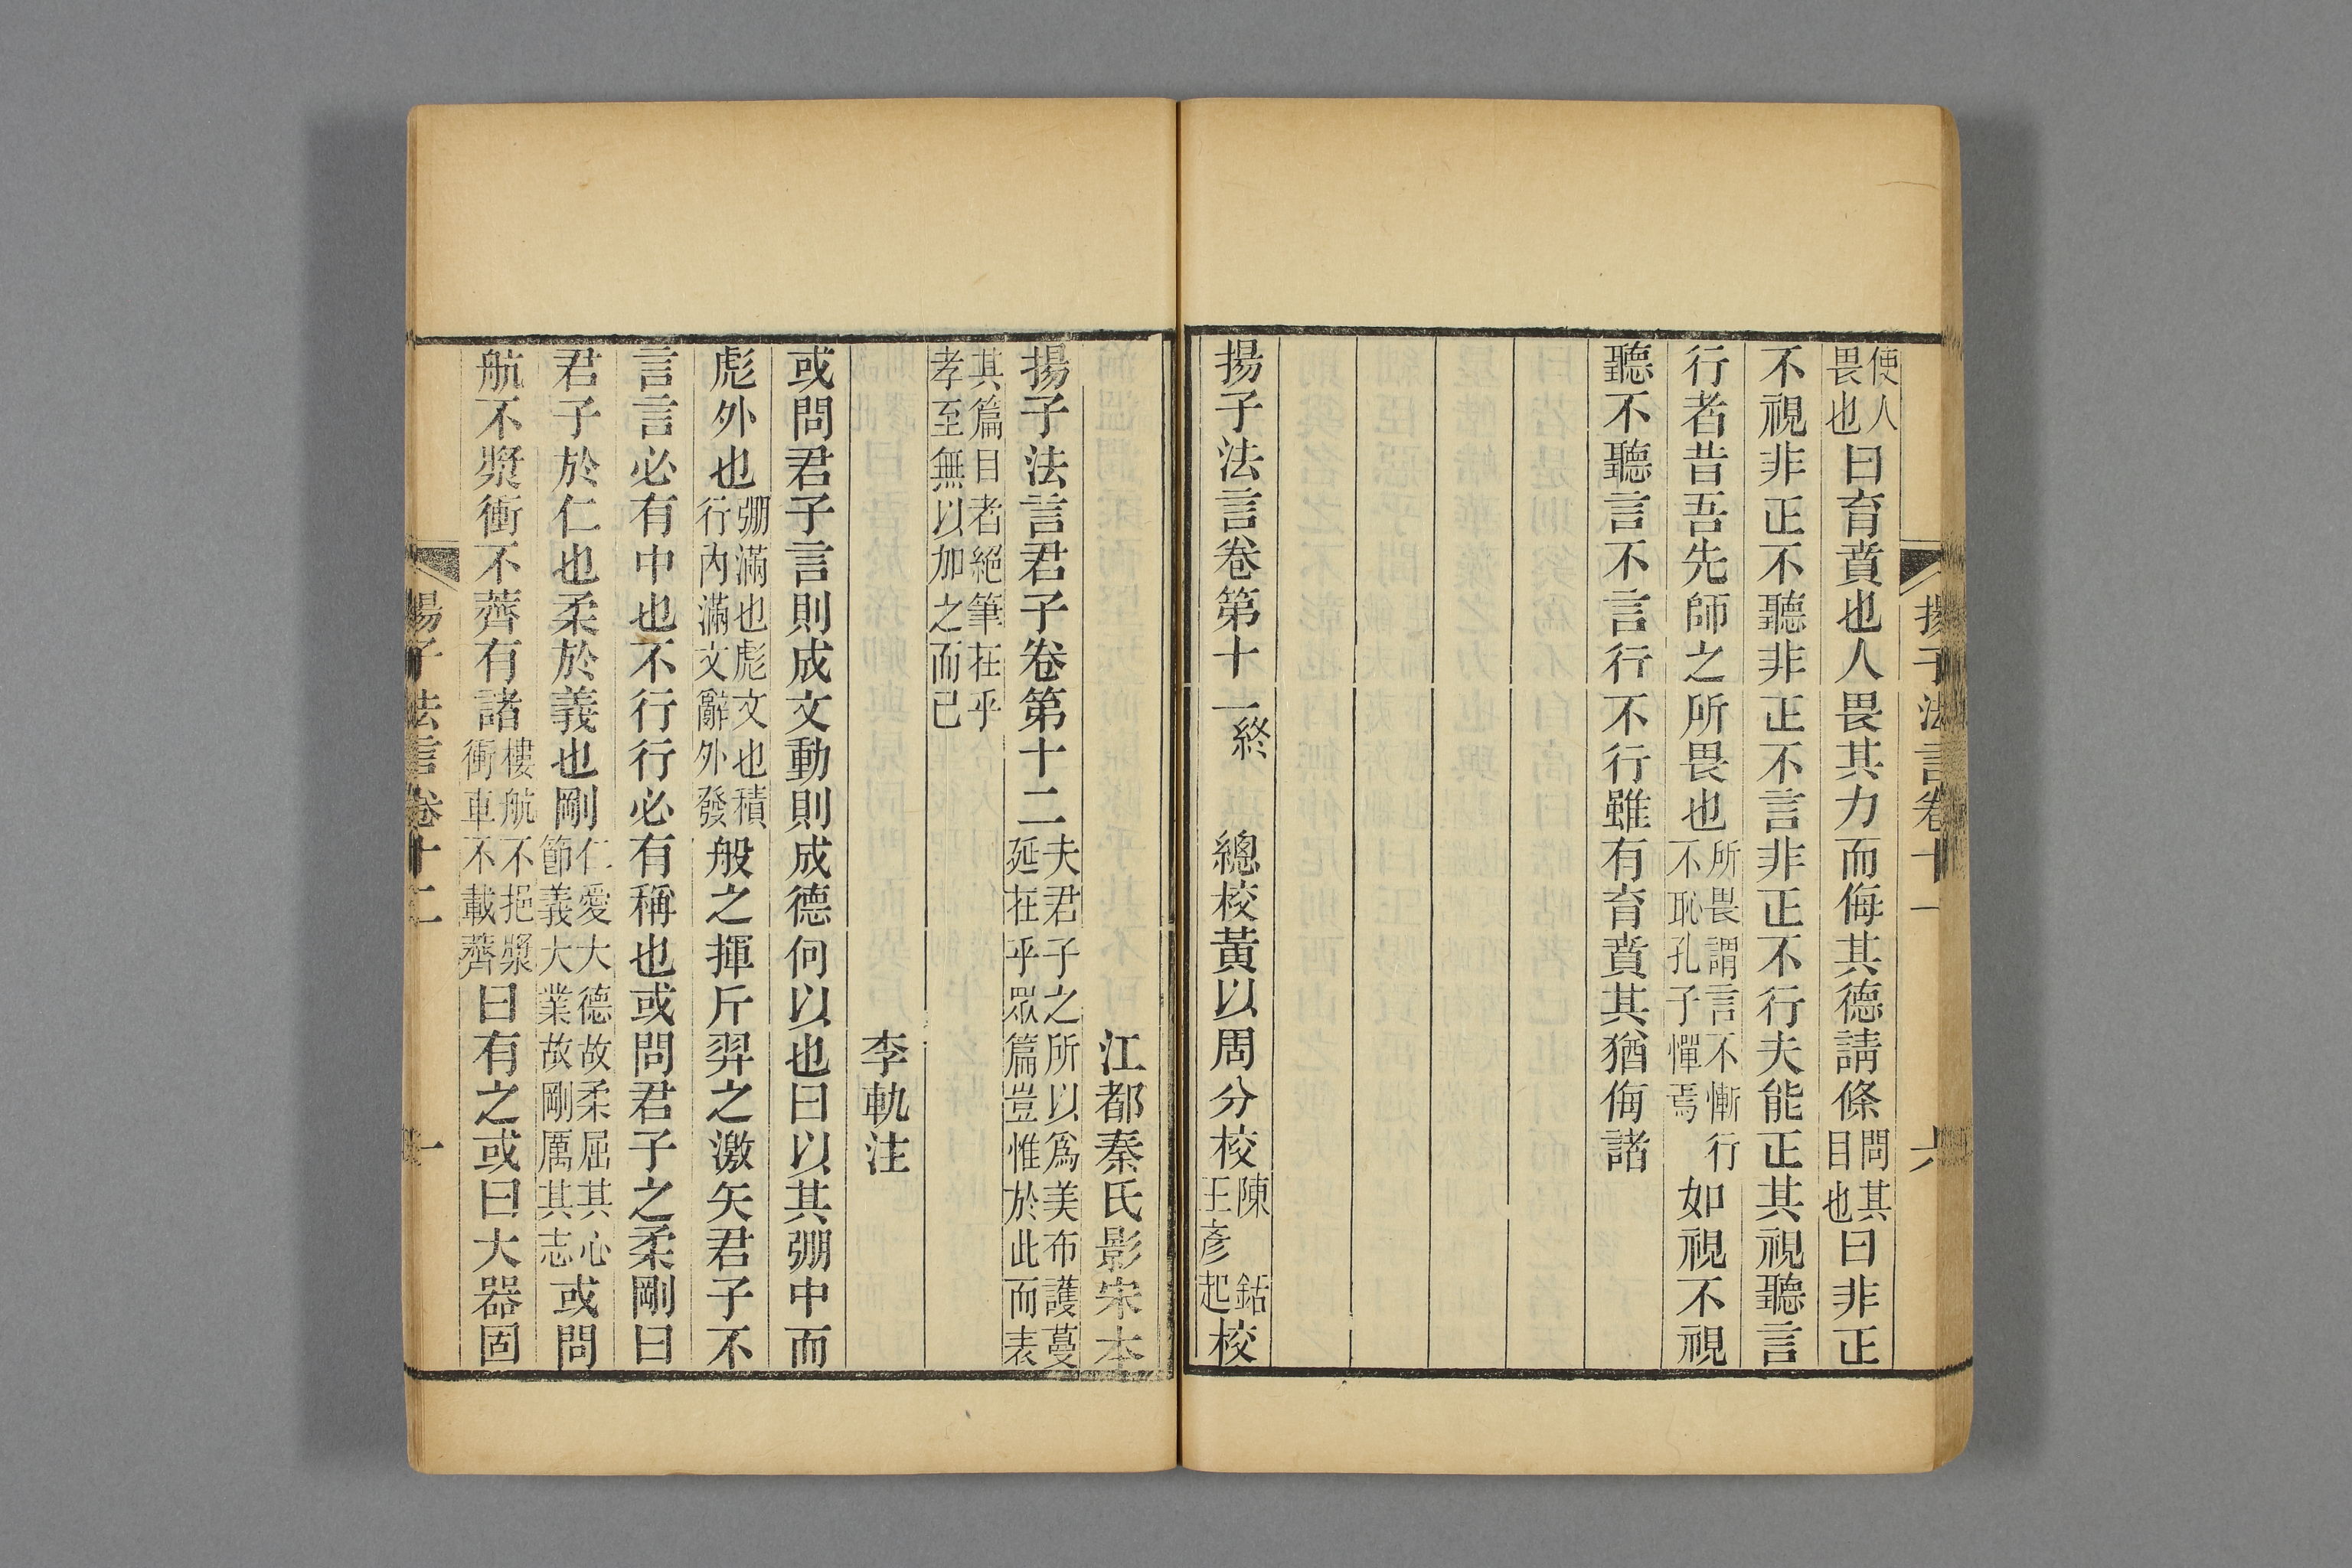 揚子法言卷十一 六
使人畏也曰育賁也人畏其力而侮其德請條問其目也曰非正
不視非正不聽非正不言非正不行夫能正其視聽言
行者昔吾先師之所畏也所畏謂言不慚行不恥孔子憚焉如視不視
聽不聽言不言行不行雖有育賁其猶侮諸
揚子法言卷第十一終 總校黃以周分校陳鉐王彥起校
江都秦氏影宋本
揚子法言君子卷第十二夫君子之所以爲美布護蔓延在乎眾篇豈惟於此而表
其篇目者絕筆在乎孝至無以加之而已
李軌注
或問君子言則成文動則成德何以也曰以其弸中而
彪外也弸滿也彪文也積行內滿文辭外發般之揮斤羿之激矢君子不
言言必有中也不行行必有稱也或問君子之柔剛曰
君子於仁也柔於義也剛仁愛大德故柔屈其心節義大業故剛厲其志或問
航不漿衝不薺有諸樓航不挹漿衝車不載薺曰有之或曰大器固
揚子法言卷十二 一